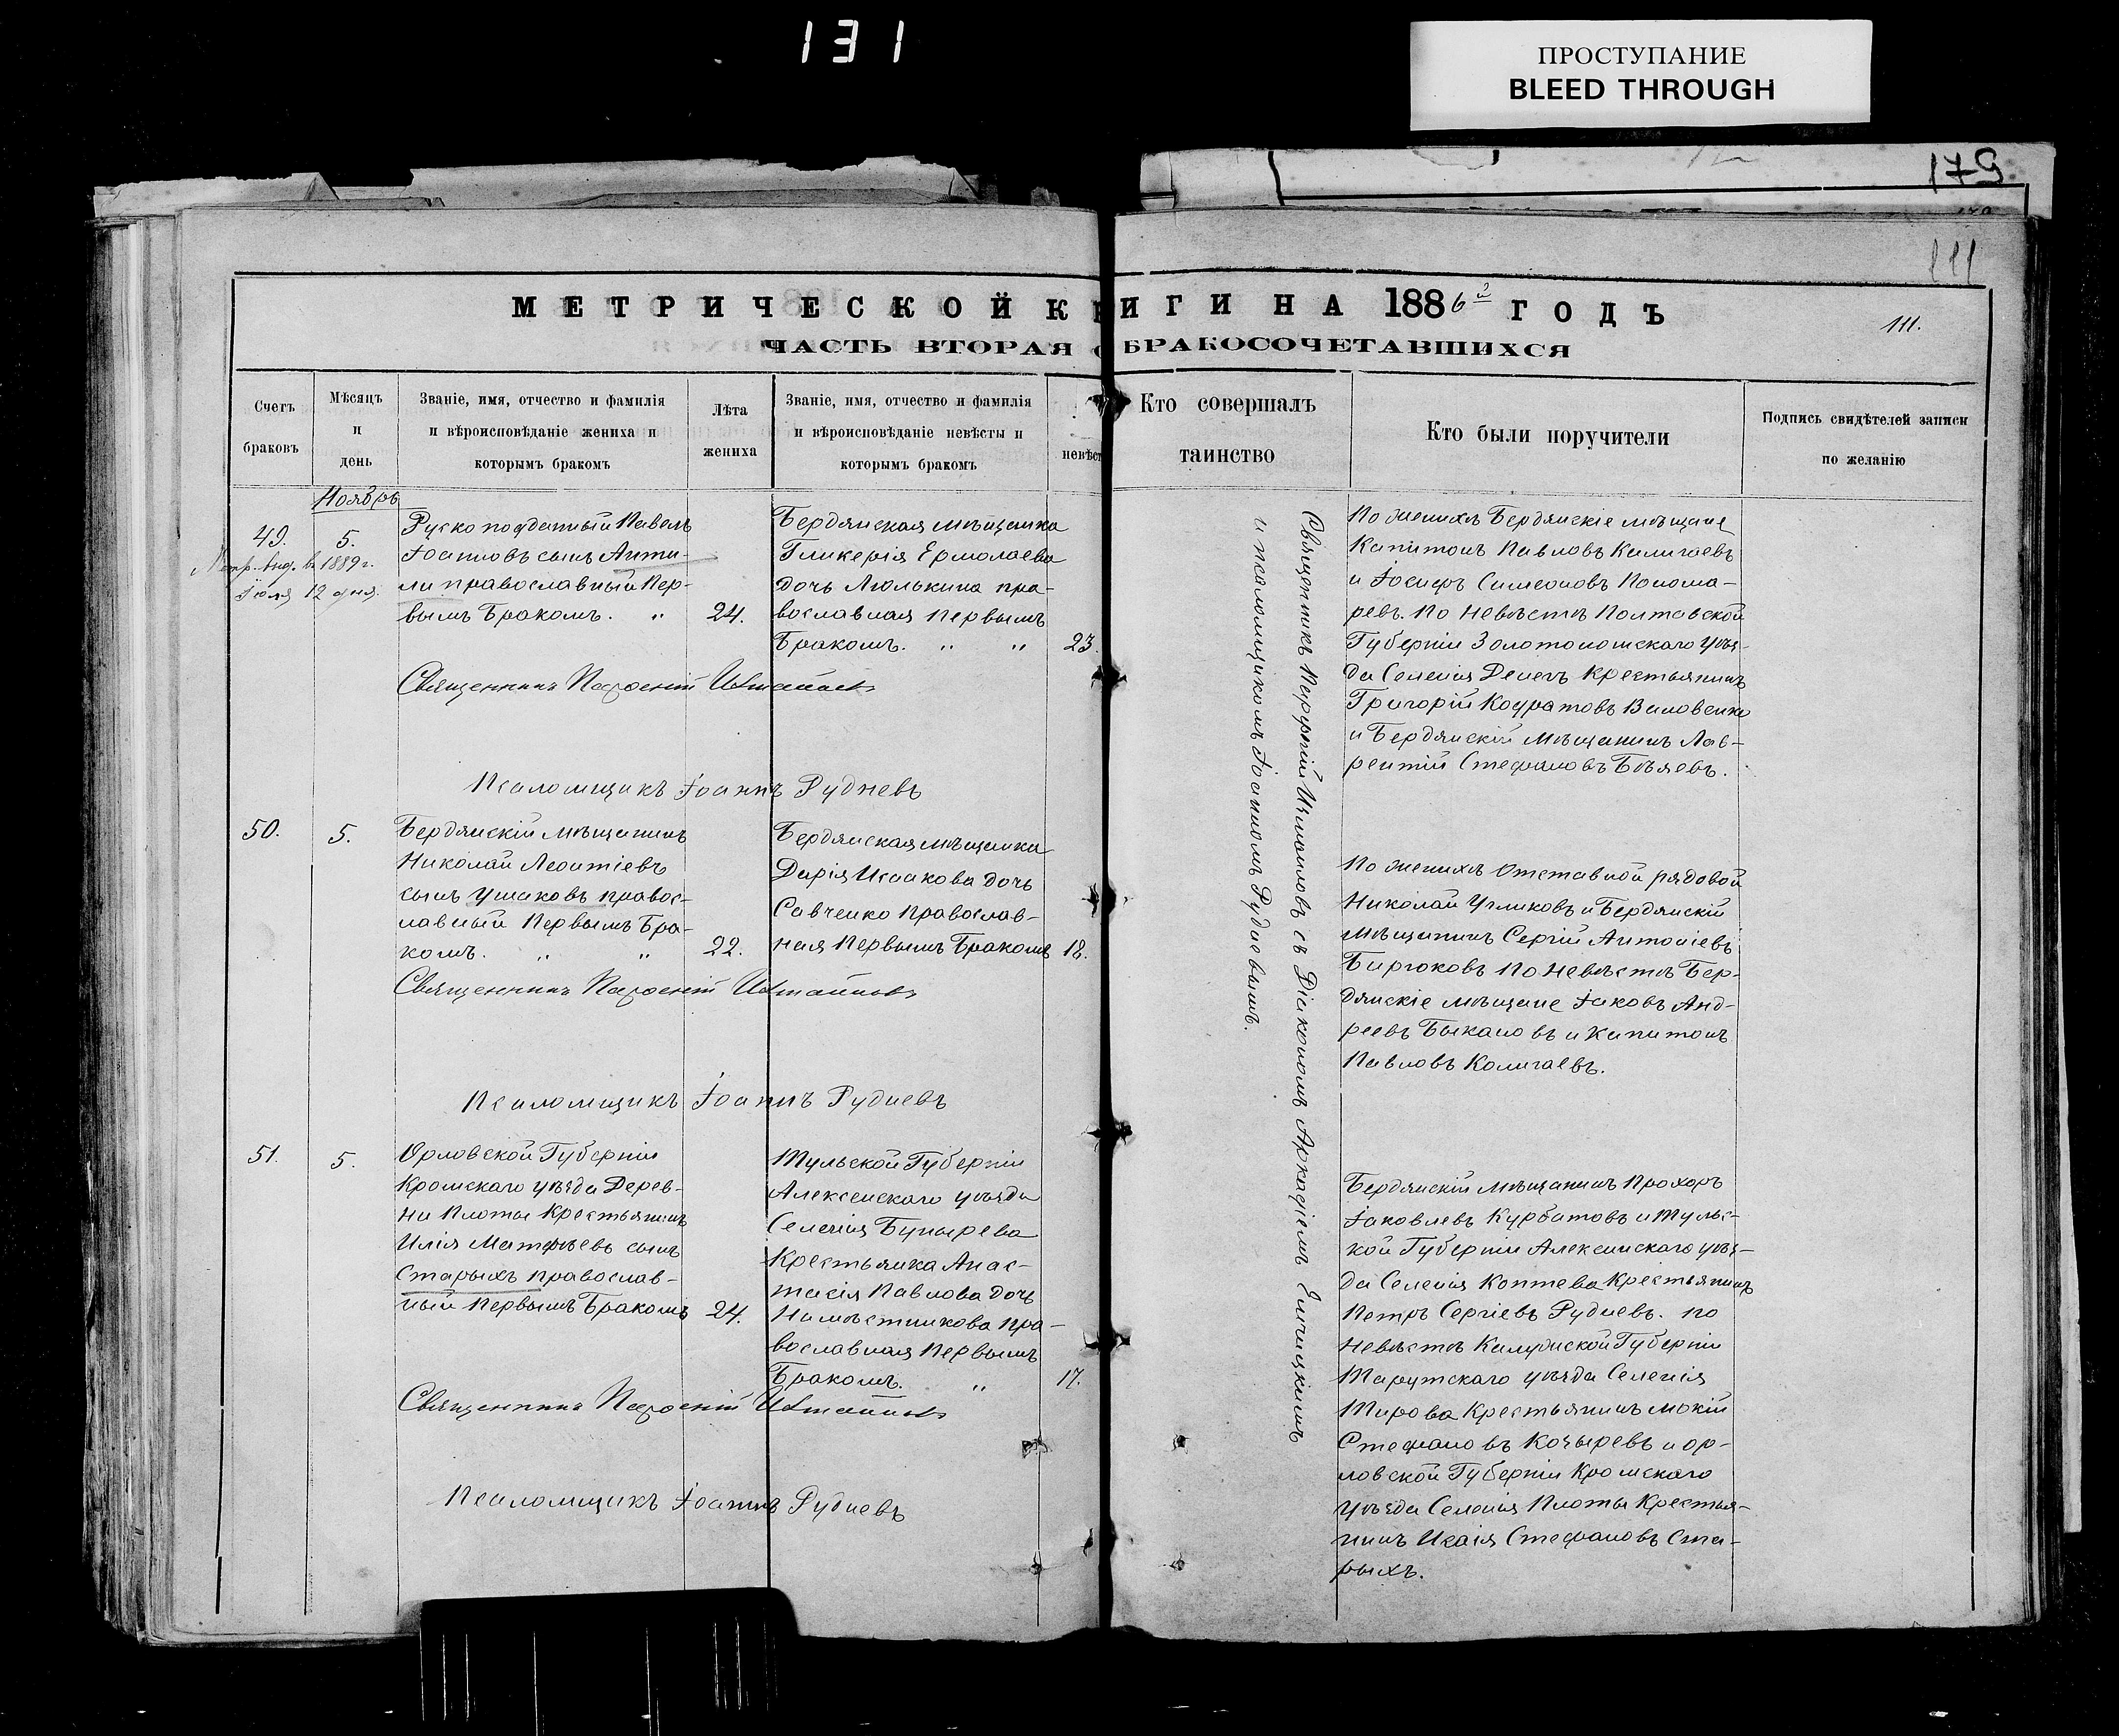 131
ПРОСТУПАНИЕ
BLEED THROUGH
179
111
МЕТРИЧЕСКОЙ КНИГИ НА 1886й ГОДЪ
111.
ЧАСТЬ ВТОРАЯ О БРАКОСОЧЕТАВШИХСЯ
Счетъ
браковъ
Мѣсяцъ
и
день
Званіе, имя, отчество и фамилія
и вѣроисповѣданіе жениха и
которымъ бракомъ
Лѣта
жениха
Званіе, имя, отчество и фамилія
и вѣроисповѣданіе невѣсты и
которымъ бракомъ
невѣст
Кто совершалъ
таинство
Кто были поручители
Подпись свидѣтелей записи
по желанію
Ноябрь
49.
5.
выд. въ 1889 г.
Іюля 12 дня.
Рускоподданный Павелъ
Іоанновъ сынъ Анти-
ли православный Пер-
вымъ Бракомъ. "
24.
Бердянская мѣщанка
Гликерія Ермолаева
дочь Люлькина пра-
вославная первымъ
Бракомъ. " "
23.
Священникъ
Псаломщикъ Іоаннъ Рудневъ
50.
5.
Бердянскій мѣщанинъ
Николай Леонтіевъ
сынъ Ушаковъ правос-
лавный Первымъ Бра-
комъ. " "
22.
Бердянская мѣщанка
Дарія Исаакова дочь
Савченко Православ-
ная Первымъ Бракомъ
18.
Священникъ
Псаломщикъ Іоаннъ Рудневъ
51.
5.
Орловской Губерніи
Кромскаго уѣзда Дерев-
ни Плоты Крестьянинъ
Илія Матфѣевъ сынъ
Старыхъ православ-
ный Первымъ Бракомъ
24.
Тульской Губерніи
Алексинскаго уѣзда
Селенія Бунырева
Крестьянка Анас-
тасія Павлова дочь
Намѣстникова пра-
вославная Первымъ
Бракомъ. "
17.
Священникъ
Псаломщикъ Іоаннъ Рудневъ
Священникъ съ Діакономъ Аркадіемъ
и псаломщикомъ Іоанномъ Рудневымъ.
По женихѣ Бердянскіе мѣщане
Капитонъ Павловъ Калигаевъ
и Іосифъ Симеоновъ Понома-
ревъ. По Невѣстѣ Полтавской
Губерніи Золотоношскаго уѣз-
да Селенія Крестьянинъ
Григорій Кодратовъ
и Бердянскій мѣщанинъ Лав-
рентій Стефановъ Бѣляевъ.
По женихѣ Отставной рядовой
Николай и Бердянскій
мѣщанинъ Сергій Антоніевъ
Бирюковъ по Невѣстѣ Бер-
дянскіе мѣщане Іаковъ Анд-
реевъ Быкановъ и Капитонъ
Павловъ Калигаевъ.
Бердянскій мѣщанинъ Прохоръ
Іаковлевъ Курбатовъ и Тульс-
кой Губерніи Алексинскаго уѣз-
да Селенія Коптева Крестьянинъ
Петръ Сергіевъ Рудневъ. по
Невѣстѣ Калужской Губерніи
Тарутскаго уѣзда Селенія
Крестьянинъ Мокій
Стефановъ Козыревъ и Ор-
ловской Губерніи Кромскаго
Уѣзда Селенія Плоты Крестья-
нинъ Исаія Стефановъ Ста-
рыхъ.